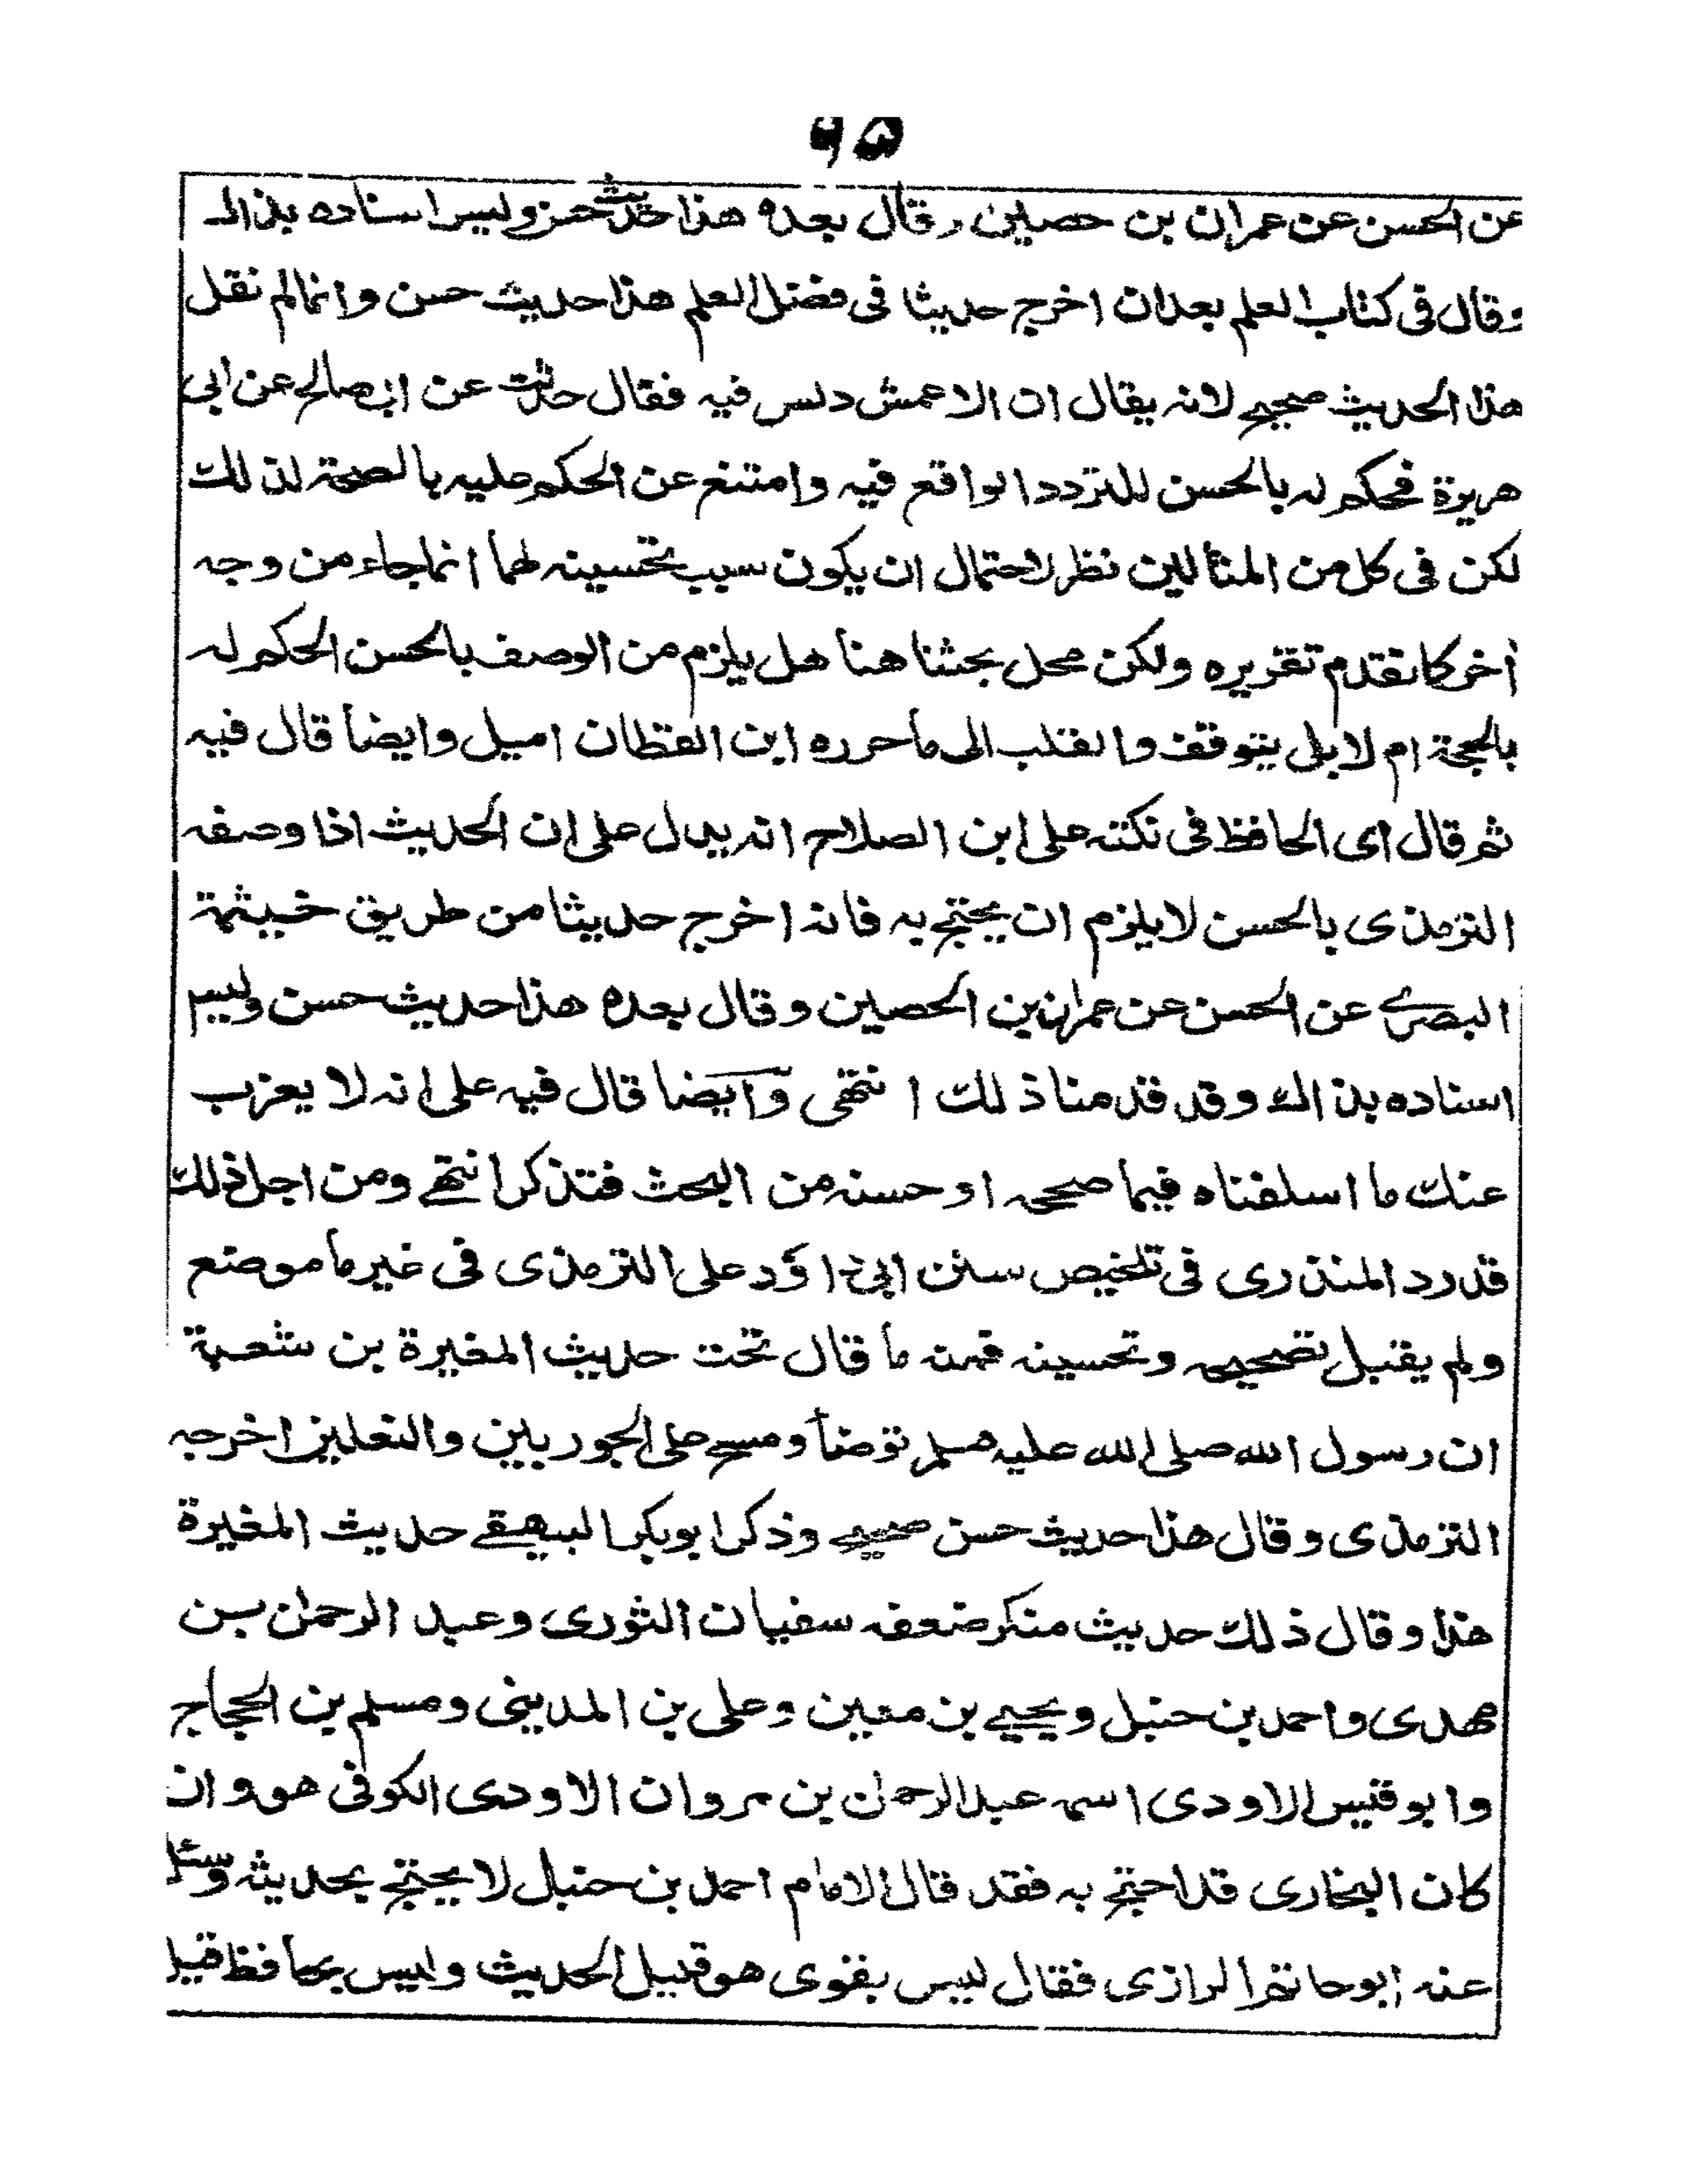 ٩٥
عن الحسن عن عمران بن حصين وقال بعده هذا حديث حسن وليس اسناده بذاك
وقال فى كتاب العلم بعد ان اخرج حديثا فى فضل العلم هذا حديث حسن وانما لم نقل
هذا الحديث صحيح لانه يقال ان الاعمش دلس فيه فقال حدثت عن ابى صالح عن ابى
هريرة فحكم له بالحسن للتردد الواقع فيه وامتنع عن الحكم عليه بالصحة لذلك
لكن فى كل من المثالين نظر لاحتمال ان يكون سبب تحسينه لهما انما جاء من وجه
أخر كما تقدم تقريره ولكن محل بحثنا هنا هل يلزم من الوصف بالحسن الحكم له
بالحجة ام لا بلى يتوقف والقلب الى ما حرره ابن القطان اميل وايضا قال فيه
ثم قال اى الحافظ فى نكته على ابن الصلاح انه يدل على ان الحديث اذا وصفه
الترمذى بالحسن لا يلزم ان يحتج به فانه اخرج حديثا من طريق خيثمة
البصرے عن الحسن عن عمران بن الحصين وقال بعده هذا حديث حسن وليس
اسناده بذاك وقد قدمنا ذلك انتهى وايضا قال فيه على انه لا يعزب
عنك ما اسلفناه فيما صححه او حسنه من البحث فتذكر انتهے ومن اجل ذلك
قد رد المنذرى فى تلخيص سنن ابى داؤد على الترمذى فى غير ما موضع
ولم يقبل تصحيحه وتحسينه فمنه ما قال تحت حديث المغيرة بن شعبة
ان رسول الله صلى الله عليه وسلم توضأ ومسح على الجوربين والنعلين اخرجه
الترمذى وقال هذا حديث حسن صحيح وذكر ابو بكر البيهقے حديث المغيرة
هذا وقال ذلك حديث منكر ضعفه سفيان الثورى وعبد الرحمن بن
مهدى واحمد بن حنبل ويحيے بن معين وعلى بن المدينى ومسلم بن الحجاج
وابو قيس الاودى اسمه عبد الرحمن بن مروان الاودى الكوفى هو وان
كان البخارى قد احتج به فقد قال الامام احمد بن حنبل لا يحتج بحديثه وسئل
عنه ابو حاتم الرازى فقال ليس بقوى هو قليل الحديث وليس بحافظ قيل